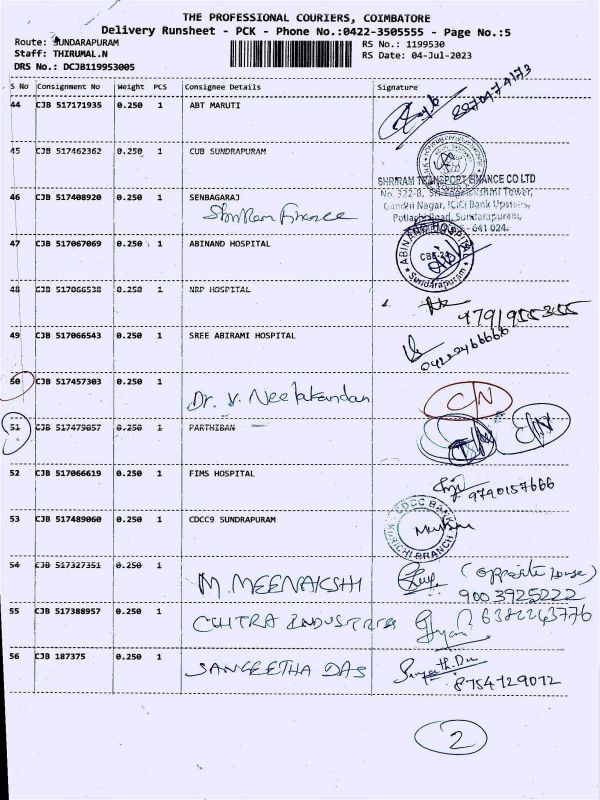 THE PROFESSIONAL COURIERS, COIMBATORE
Delivery Runsheet - PCK - Phone No.:0422-3505555 - Page No.:5
Route: SUNDARAPURAM RS No.: 1199530
Staff: THIRUMAL.N RS Date: 04-Jul-2023
DRS No.: DCJB119953005
S No Consignment No Weight PCS Consignee Details Signature
44 CJB 517171935 0.250 1 ABT MARUTI
45 CJB 517462362 0.250 1 CUB SUNDRAPURAM
SHRIRAM TRANSPORT FINANCE CO LTD
46 CJB 517408920 0.250 1 SENBAGARAJ
Shriram Finance
Gandhi Nagar, ICICI Bank Upstairs,
Pollachi Road, Sundarapuram,
- 641 024.
47 CJB 517067069 0.250 1 ABINAND HOSPITAL
ABINAND HOSPITAL
CBE-24
Sundarapuram
48 CJB 517066538 0.250 1 NRP HOSPITAL
9791955355
49 CJB 517066543 0.250 1 SREE ABIRAMI HOSPITAL
04222466666
50 CJB 517457303 0.250 1
Dr. V. Neelakandan C/N
51 CJB 517479857 0.250 1 PARTHIBAN
52 CJB 517066619 0.250 1 FIMS HOSPITAL
9790157666
53 CJB 517489060 0.250 1 CDCC9 SUNDRAPURAM
CDCC BANK
KURICHI BRANCH
54 CJB 517327351 0.250 1
M. MEENAKSHI (opposite house)
9003925222
55 CJB 517388957 0.250 1
CHITRA INDUSTRIES 6382243776
56 CJB 187375 0.250 1
SANGEETHA DAS
8754129012
2